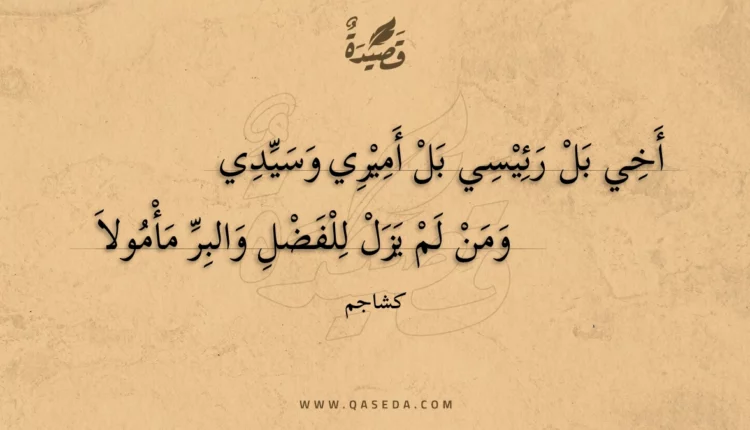 قَصِيْدَةٌ
أَخِي بَلْ رَئِيْسِي بَلْ أَمِيْرِي وَسَيِّدِي
وَمَنْ لَمْ يَزَلْ لِلْفَضْلِ وَالبِرِّ مَأْمُولاَ
كشاجم
WWW.QASEDA.COM